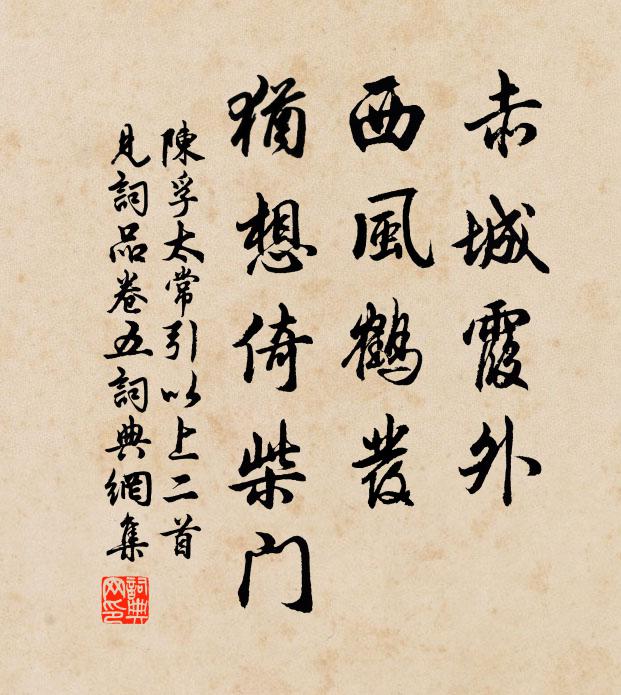 赤城霞外
西風鶴髮
猶想倚柴門
陳孚太常引以上二首
見詞品卷五詞典網集
詞典
网印